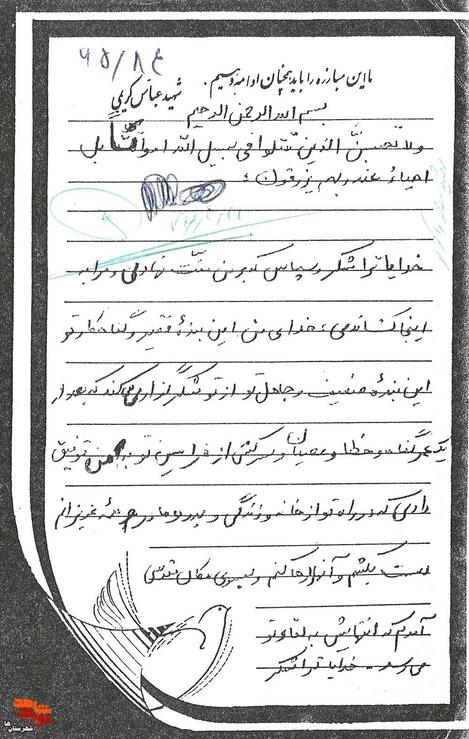 ۶۵/۸/۴
ما این مبارزه را باید همچنان ادامه دهیم.
شهید عباس کریمی
بسم الله الرحمن الرحیم
ولا تحسبن الذین قتلوا فی سبیل الله امواتا بل
احیاءٌ عند ربهم یرزقون:
خدایا ترا شکر و سپاس که بر من منّت نهادی و مرا به
اینجا کشاندی، خدای من این بندهٔ فقیر و گناهکار تو
این بندهٔ ضعیف و جاهل تو از تو شکرگزاری می‌کند که بعد از
یک عمر گناه و خطا و عصیان و سرکشی از فرامین تو به من توفیق
دادی که در راه تو از خانه و زندگی و پدر و مادر و همهٔ عزیزانم
دست بکشم و آنرا رها کنم و بسوی مکان مقدسی
آمدم که انتهایش به لقاء تو
می رسد. خدایا ترا شکر
شهرستان ها